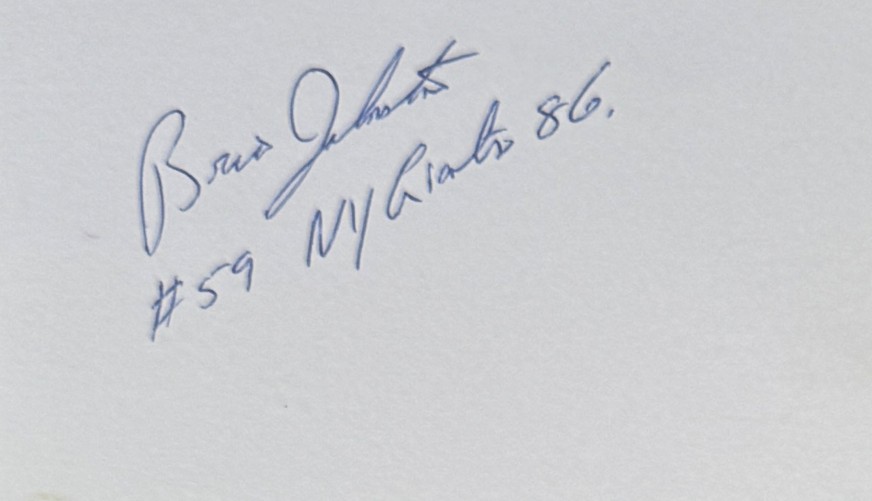 Brian Johnston
#59 NY Giants 86.